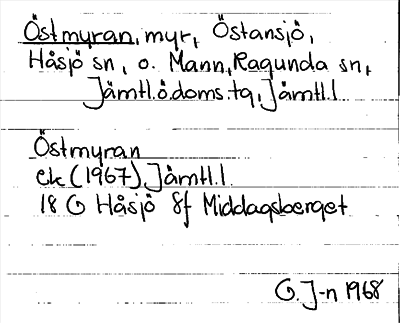 Östmyran, myr, Östansjö,
Håsjö sn, o. Mann, Ragunda sn,
Jämtl.ö.doms.tg, Jämtl.l
Östmyran
ek (1967) Jämtl.l.
18 G Håsjö 8f Middagsberget
G. J-n 1968